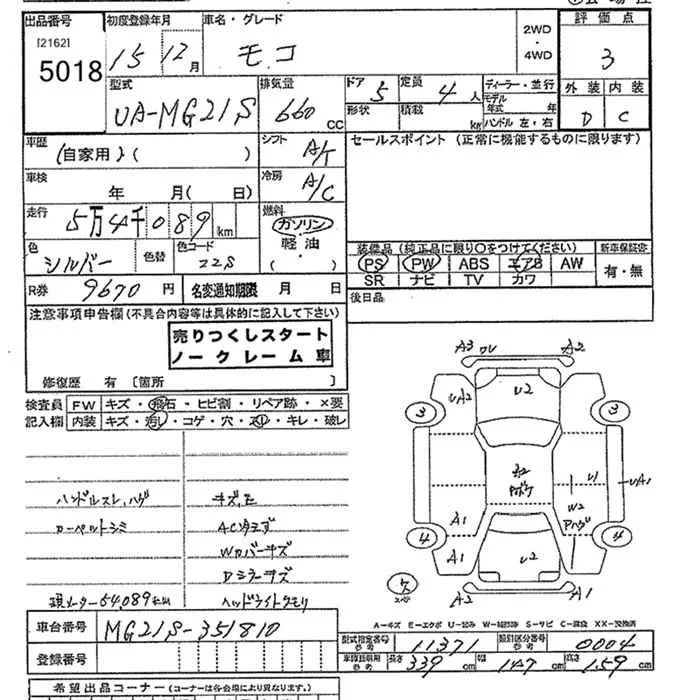 出品番号
[2162]
5018
初度登録年月
15 12月
車名・グレード
モコ
2WD
・
4WD
評価点
3
外装 内装
D C
型式
UA-MG21S
排気量
660 cc
ドア 5
定員 4人
形状
積載 kg
ディーラー・並行
モデル年式 年
ハンドル 左・右
車歴
(自家用)( )
シフト
A/T
セールスポイント (正常に機能するものに限ります)
車検
年 月( 日)
冷房
A/C
走行
5万4千089km
燃料
ガソリン
軽油
( )
色
シルバー
色替
色コード
22S
装備品 (純正品に限り○をつけてください)
新車保証書
PS PW ABS エアB AW
SR ナビ TV カワ
有・無
R券 9670円
名変通知期限 月 日
後日品
注意事項申告欄 (不具合内容等は具体的に記入して下さい)
売りつくしスタート
ノークレーム車
修復歴 有 〔箇所 〕
検査員
記入欄
FW キズ・飛石・ヒビ割・リペア跡・×要
内装 キズ・汚レ・コゲ・穴・スリ・キレ・破レ
ハンドルスレ,ハゲ
カーペットシミ
現メーター54,089km
キズ凹
ACタヌズ
Wカバーキズ
Dミラーキズ
ヘッドライトクモリ
A3 ワレ A2
UA2
U2
3
3
U1
UA1
W2
Aハゲ
A1
A1
4
4
U2
A2
A1
A-キズ E-エクボ U-凹み W-補修跡 S-サビ C-腐食 XX-交換済
車台番号
MG21S-351810
登録番号
型式指定番号 参考
11371
類別区分番号 参考
0004
車検証明細 参考
長さ 339 cm
幅 147 cm
高さ 159 cm
希望出品コーナー (コーナーは各会場により異なります。)